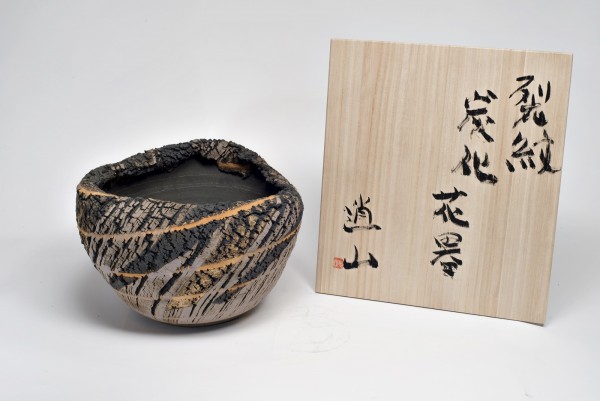 裂紋
炭化
花器
逍山